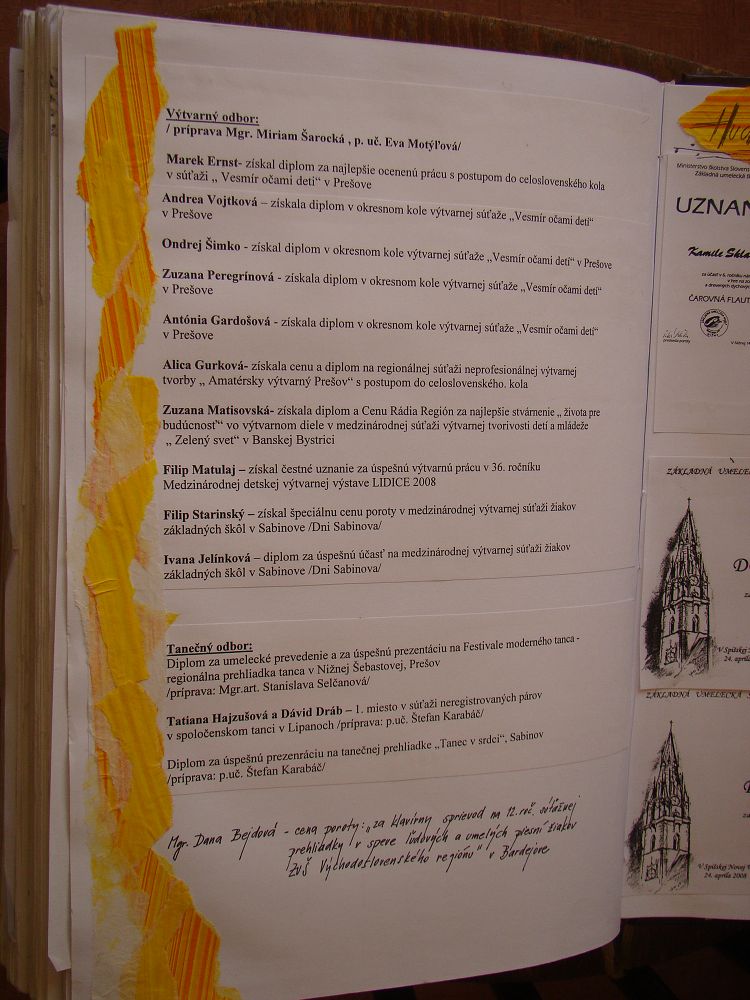 Výtvarný odbor:
/ príprava Mgr. Miriam Šarocká , p. uč. Eva Motýľová/
Marek Ernst- získal diplom za najlepšie ocenenú prácu s postupom do celoslovenského kola
v súťaži „ Vesmír očami detí“ v Prešove
Andrea Vojtková – získala diplom v okresnom kole výtvarnej súťaže „Vesmír očami detí“
v Prešove
Ondrej Šimko - získal diplom v okresnom kole výtvarnej súťaže „Vesmír očami detí“ v Prešove
Zuzana Peregrínová - získala diplom v okresnom kole výtvarnej súťaže „Vesmír očami detí“
v Prešove
Antónia Gardošová - získala diplom v okresnom kole výtvarnej súťaže „Vesmír očami detí“
v Prešove
Alica Gurková- získala cenu a diplom na regionálnej súťaži neprofesionálnej výtvarnej
tvorby „ Amatérsky výtvarný Prešov“ s postupom do celoslovenského. kola
Zuzana Matisovská- získala diplom a Cenu Rádia Región za najlepšie stvárnenie „ života pre
budúcnosť“ vo výtvarnom diele v medzinárodnej súťaži výtvarnej tvorivosti detí a mládeže
„ Zelený svet“ v Banskej Bystrici
Filip Matulaj – získal čestné uznanie za úspešnú výtvarnú prácu v 36. ročníku
Medzinárodnej detskej výtvarnej výstave LIDICE 2008
Filip Starinský – získal špeciálnu cenu poroty v medzinárodnej výtvarnej súťaži žiakov
základných škôl v Sabinove /Dni Sabinova/
Ivana Jelínková – diplom za úspešnú účasť na medzinárodnej výtvarnej súťaži žiakov
základných škôl v Sabinove /Dni Sabinova/
Tanečný odbor:
Diplom za umelecké prevedenie a za úspešnú prezentáciu na Festivale moderného tanca -
regionálna prehliadka tanca v Nižnej Šebastovej, Prešov
/príprava: Mgr.art. Stanislava Selčanová/
Tatiana Hajzušová a Dávid Dráb – 1. miesto v súťaži neregistrovaných párov
v spoločenskom tanci v Lipanoch /príprava: p.uč. Štefan Karabáč/
Diplom za úspešnú prezenráciu na tanečnej prehliadke „Tanec v srdci“, Sabinov
/príprava: p.uč. Štefan Karabáč/
Mgr. Dana Bejdová - cena poroty: „za klavírny sprievod na 12. roč. súťažnej
prehliadky v speve ľudových a umelých piesní žiakov
ZUŠ Východoslovenského regiónu“ v Bardejove
Ministerstvo školstva Slovens
Základná umelecká š
UZNAN
Kamile Skla
za účasť v 6. ročníku
ČAROVNÁ FLAUT
ZÁKLADNÁ UMELE
V Spišskej
24. apríla
ZÁKLADNÁ UMELECKÁ
V Spišskej Novej
24. apríla 2008